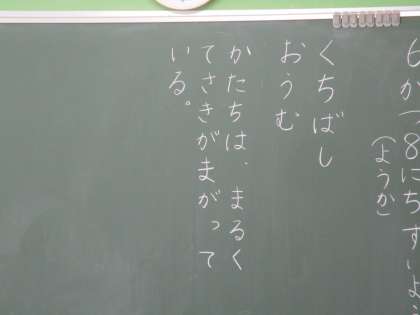 6がつ8にちすいよう
(ようか)
くちばし
おうむ
かたちは、まるく
てさきがまがって
いる。